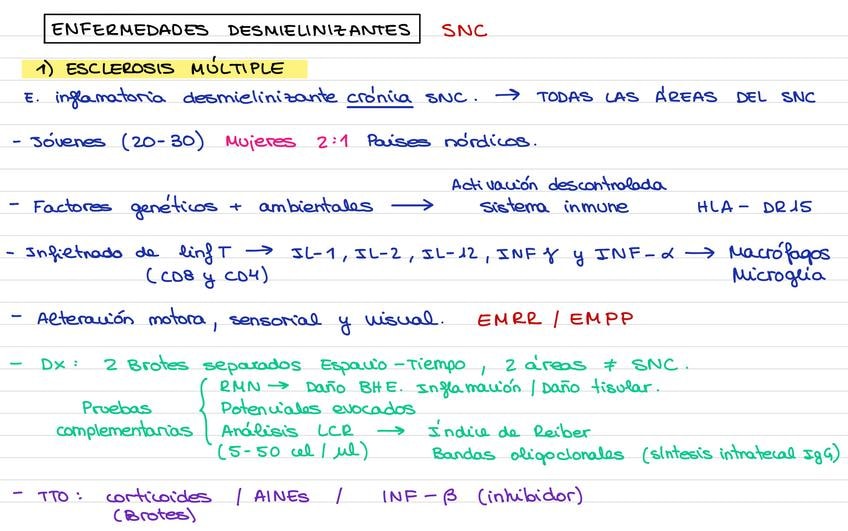 ENFERMEDADES DESMIELINIZANTES SNC
1) ESCLEROSIS MÚLTIPLE
E. inflamatoria desmielinizante crónica SNC. → TODAS LAS ÁREAS DEL SNC
- Jóvenes (20-30) Mujeres 2:1 Paises nórdicos.
- Factores genéticos + ambientales → Activación descontrolada
sistema inmune HLA - DR15
- Infiltrado de linf T → IL-1, IL-2, IL-12, INF γ y INF-α → Macrófagos
(CD8 y CD4) Microglia
- Alteración motora, sensorial y visual. EMRR / EMPP
- DX: 2 Brotes separados Espacio-Tiempo, 2 áreas ≠ SNC.
Pruebas complementarias { RMN → Daño BHE. Inflamación / Daño tisular.
Potenciales evocados
Análisis LCR → Índice de Reiber
(5-50 cel / μl) Bandas oligoclonales (síntesis intratecal IgG)
- TTO: corticoides / AINEs / INF-β (inhibidor)
(Brotes)